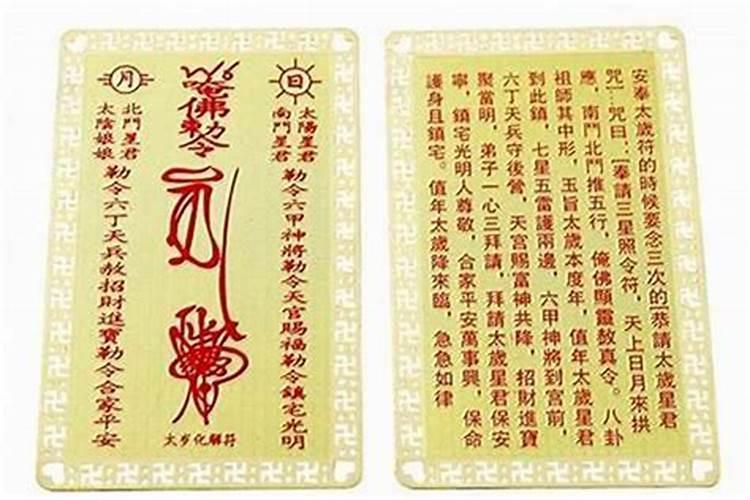 日
太陽星君
南鬥星君
勒令六甲神將勒令天官賜福勒令鎮宅光明
唵佛勅令
太岁化解符
月
北鬥星君
太陰娘娘
勒令六丁天兵赦招財進寶勒令合家平安
安奉太歲符的時候要念三次的[恭請太歲星君
咒]…咒曰:[奉請三星照令符,天上日月來拱
應,南鬥北鬥推五行,俺佛顯靈敖真令。八卦
祖師其中形,玉旨太歲本度年,值年太歲星君
到此鎮,七星五雷護兩邊,六甲神將到宮前,
六丁天兵守後營,天宮賜富神共降,招財進寶
聚當明,弟子一心三拜請,拜請太歲星君保安
寧,鎮宅光明人尊敬,合家平安萬事興,保命
護身且鎮宅。值年太歲降來臨,急急如律